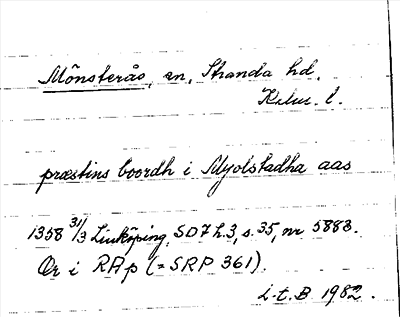 Mönsterås, sn, Stranda hd,
Kalm. l.
præstins boordh i Myolstadha aas
1358 31/3 Linköping. SD7 h.3, s. 35, nr 5883.
Or i RAp (= SRP 361).
L-t. B 1982.